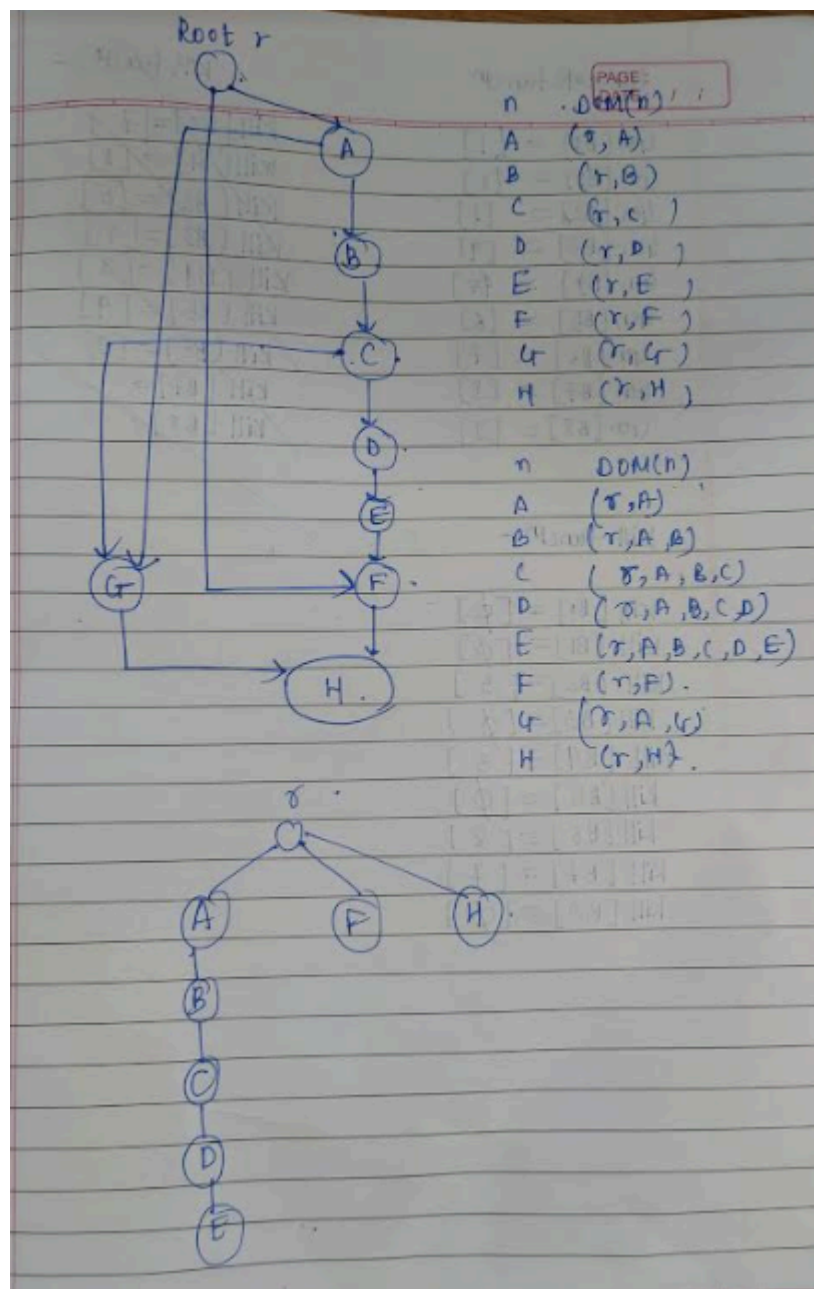 Root r
PAGE:
DATE:
n DOM(n)
A (r, A)
B (r, B)
C (r, c )
D (r, D )
E (r, E )
F (r, F )
G (r, G)
H (r, H )
A
B
C
D
E
F
G
H .
n DOM(n)
A (r, A)
B (r, A, B)
C ( r, A, B, C)
D ( r, A, B, C, D)
E (r, A, B, C, D, E)
F (r, F) .
G (r, A, G)
H (r, H} .
r .
A F H .
B
C
D
E